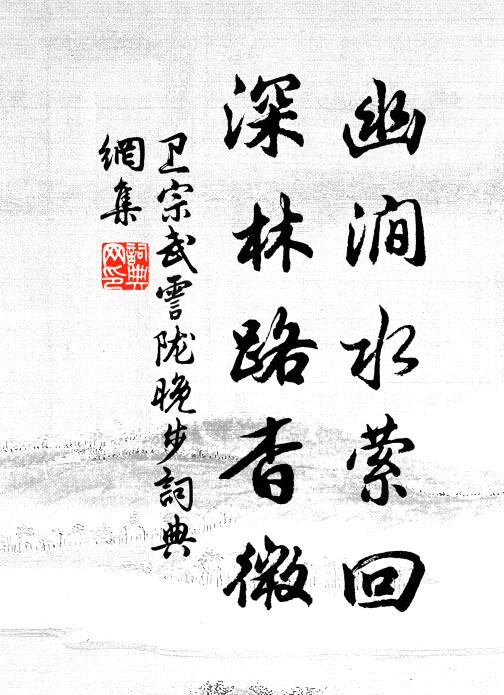 幽涧水萦回
深林路杳微
卫宗武霅陇晚步詞典
網集
詞典
网印